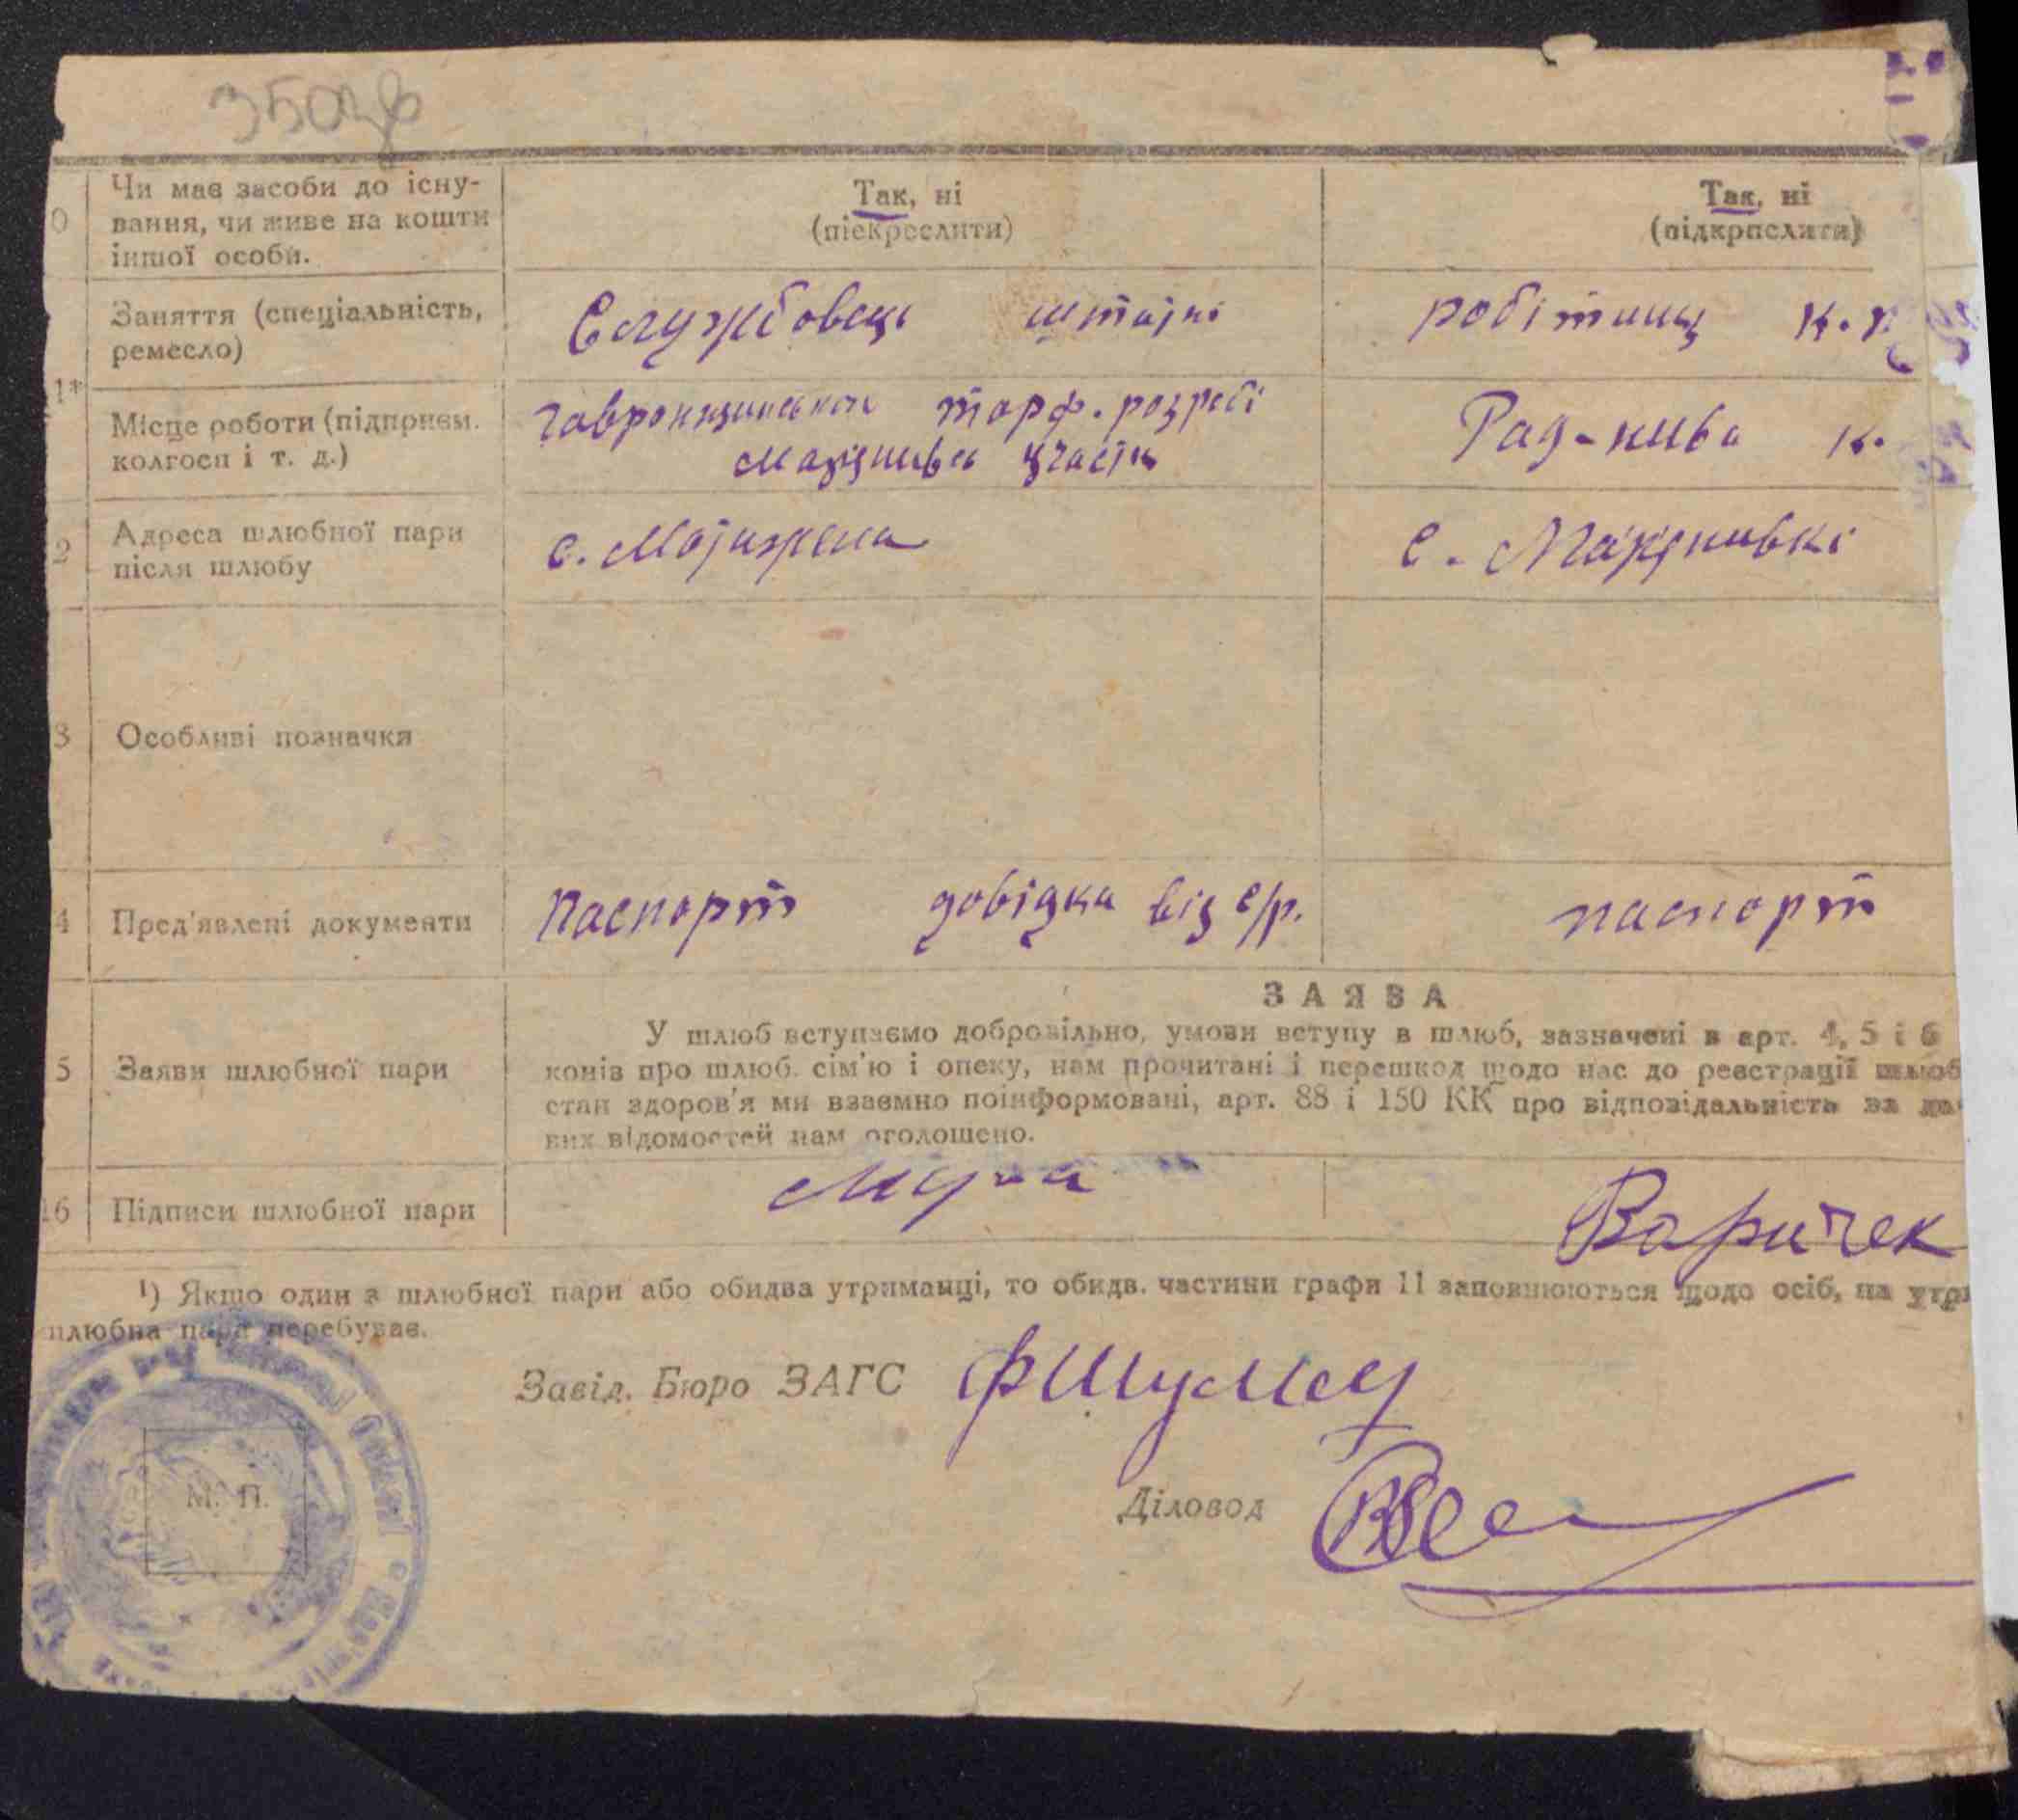 Чи має засоби до існу-
вання, чи живе на кошти
іншої особи.
Так, ні
(піекреслити)
Так, ні
(підкрпслити)
0
Заняття (спеціальність,
ремесло)
Службовець штатні
робітниц к.
1*
Місце роботи (підприєм.
колгосп і т. д.)
торф. розробі
участк
Рад-нива к.
2
Адреса шлюбної пари
після шлюбу
с. Мотижена
с.
3
Особливі позначки
4
Пред'явлені документи
Паспорт довідка від с/р.
паспорт
5
Заяви шлюбної пари
ЗАЯВА
У шлюб вступаємо добровільно, умови вступу в шлюб, зазначені в арт. 4, 5 і 6
конів про шлюб. сім'ю і опеку, нам прочитані і перешкод щодо нас до реєстрації шлюб
стан здоров'я ми взаємно поінформовані, арт. 88 і 150 КК про відповідальність за
вих відомостей нам оголошено.
16
Підписи шлюбної пари
Варичек
¹) Якщо один з шлюбної пари або обидва утриманці, то обидв. частини графи 11 заповнюються щодо осіб, на утри
шлюбна пара перебуває.
Завід. Бюро ЗАГС
М. П.
Діловод